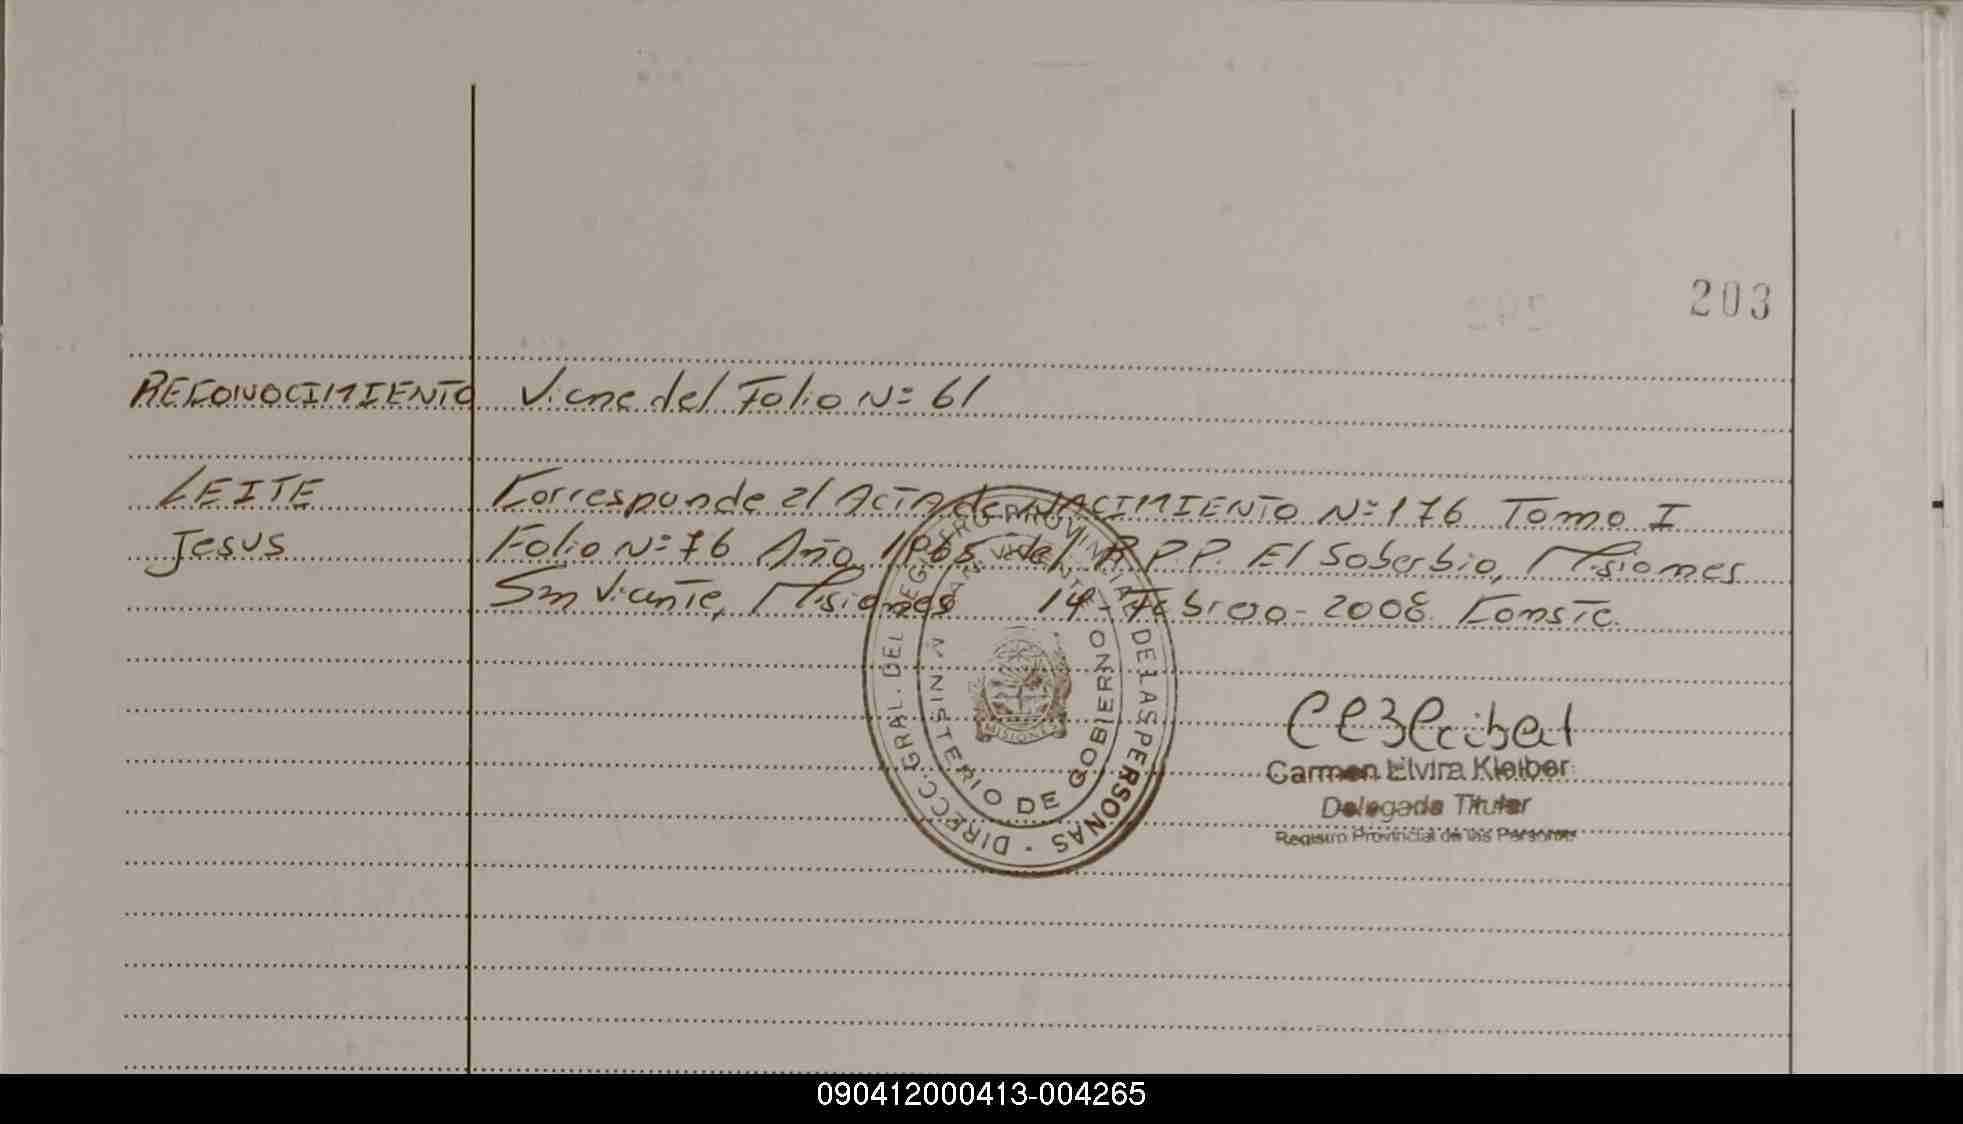 203
RECONOCIMIENTO Viene del Folio Nº 61
LEITE Corresponde al Acta de NACIMIENTO Nº 176 Tomo I
Jesus Folio Nº 76 Año 1985 del R.P.P. El Soberbio, Misiones
San Vicente, Misiones 14-Febrero-2008. Conste.
DIRECC. GRAL. DEL REGISTRO PROVINCIAL DE LAS PERSONAS
MINISTERIO DE GOBIERNO
MISIONES
Carmen Elvira Kleiber
Delegada Titular
Registro Provincial de las Personas
090412000413-004265